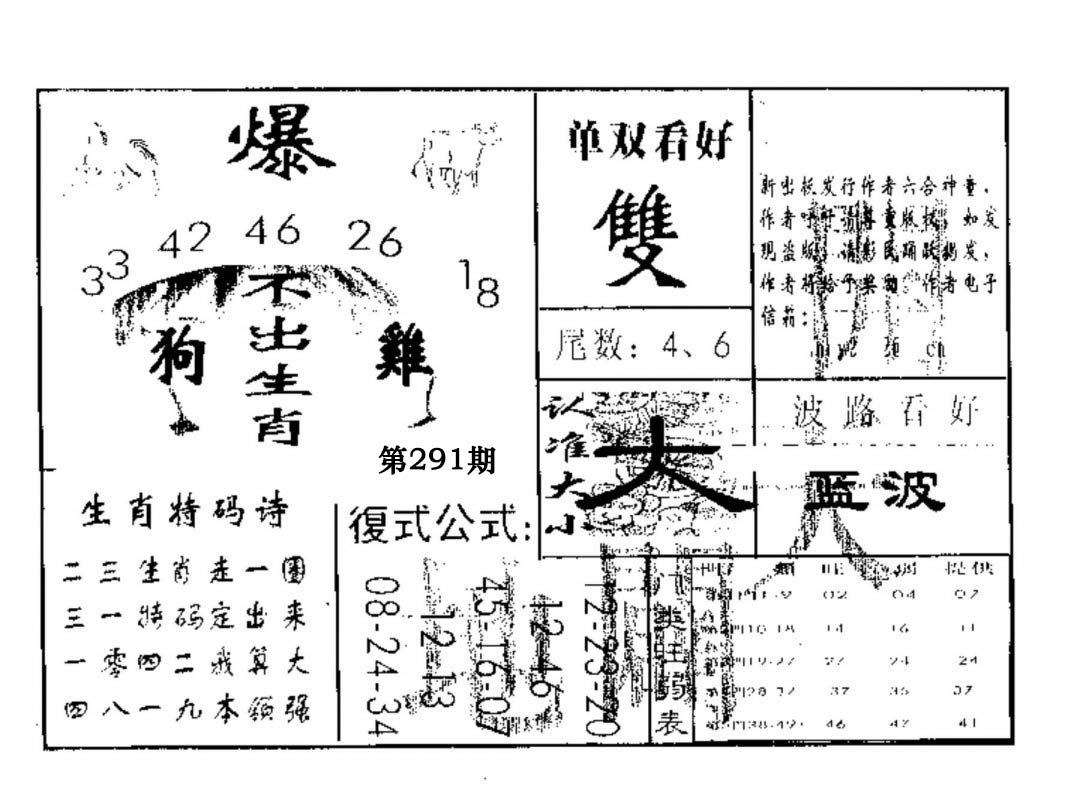 爆
33 42 46 26 18
不出生肖
狗
雞
第291期
单双看好
雙
尾数：4、6
认准大小
大
新出板发行作者六合神童，
作者吁吁请尊重版权，如发
现盗版，请彩民踊跃揭发，
作者将给予奖励。作者电子
信箱：
波路看好
蓝波
生肖特码诗
二三生肖走一圈
三一特码定出来
一零四二我算大
四八一九本领强
復式公式：
08-24-34
12-13
45-16-07
12-46
12-23-20
门类旺弱表
门类 旺 弱 提供
02 04 07
14 16 11
27 24 24
37 35 37
46 42 41